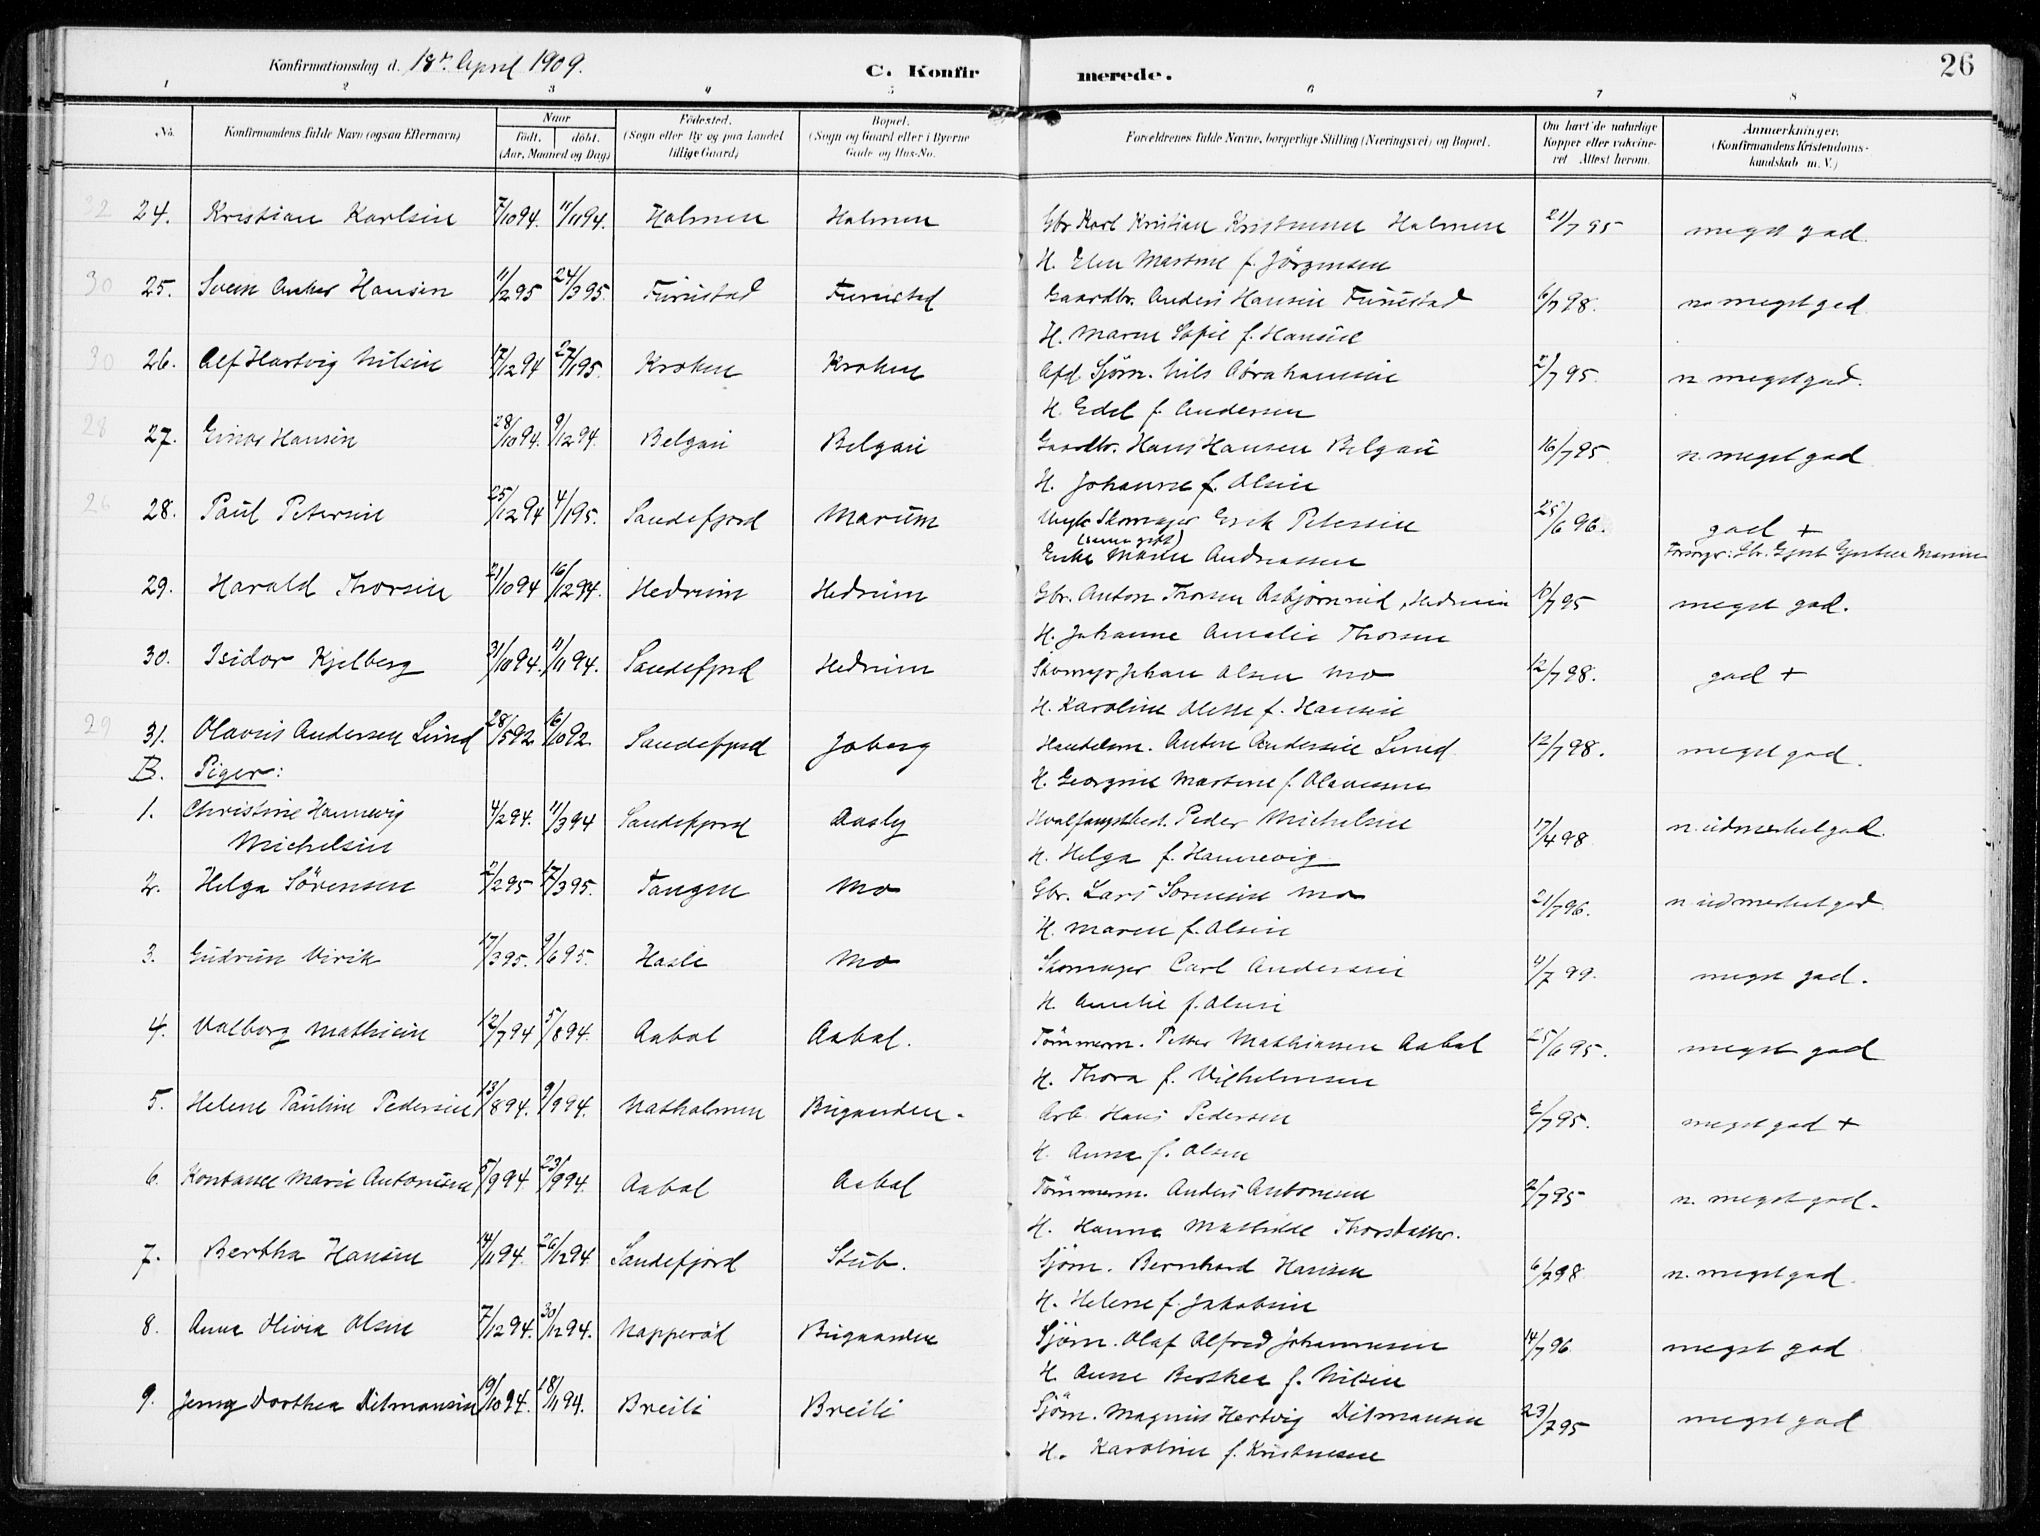 Konfirmationsdag d. 18de April 1909.
C. Konfirmerede.
26
1 2 3 4 5 6 7 8
No.
Konfirmandens fulde Navn (ogsaa Efternavn)
Naar
født. døbt.
(Aar, Maaned og Dag)
Fødested.
(Sogn eller By og paa Landet
tillige Gaard)
Bopæl.
(Sogn og Gaard eller i Byerne
Gade og Hus-No.
Forældrenes fulde Navne, borgerlige Stilling (Næringsvei) og Bopæl.
Om havt de naturlige
Kopper eller vakcine-
ret Attest herom.
Anmærkninger.
(Konfirmandens Kristendoms-
kundskab m. V.)
32 24. Kristian Karlsen 7/10 94. 11/11 94. Holmen Holmen Gbr Karl Kristian Kristensen Holmen 21/7 95 meget god
H. Elen Martine f. Jörgensen
30 25. Svein Anker Hansen 11/2 95 24/3 95. Furustad Furustad Gaardbr. Anders Hansen Furustad 6/7 98. n. meget god
H. Maren Sofie f. Hansen
30 26. Alf Hartvig Nilsen 17/12 94 27/1 95. Kroken Kroken Afd Sjöm. Nils Abrahamsen 2/7 95. n meget god.
H. Edel f. Andersen
28 27. Einar Hansen 28/10 94. 9/12 94. Belgau Belgau Gaardbr. Hans Hansen Belgau 16/7 95 n. meget god
H. Johanne f. Olsen
26 28. Paul Petersen 25/12 94 4/1 95. Sandefjord Marum Ungk. Skomager Erik Petersen 25/6 96. god +
Enke Maren Andreassen
29. Harald Thorsen 21/10 94 16/12 94. Hedrum Hedrum Gbr. Anton Thorsen Asbjørnrød, Hedrum 10/7 95 meget god.
H. Johanne Amalie Thorsen
30. Isidor Kjelberg 31/10 94. 11/11 94. Sandefjord Hedrum Skomager Johan Olsen Mo 12/7 98. god +
H. Karoline Olette f. Hansen
29 31. Olavus Andersen Lund 28/5 92 16/10 92 Sandefjord Joberg Handelsm. Anton Andersen Lund 12/7 98. meget god.
H. Georgine Martine f. Olavesen
B. Piger:
1. Christine Hannevig 4/2 94. 11/3 94 Sandefjord Aasly Hvalfangstbest. Peder Michelsen 17/4 98 n. udmerket god.
Michelsen H. Helga f. Hannevig
2. Helga Sörensen 2/2 95 17/3 95. Tangen Mo Gbr. Lars Sörensen Mo 21/7 96. n udmerket god.
H. Maren f. Olsen
3. Gudrun Virik 17/3 95. 9/6 95. Hasle Mo Skomager Carl Andersen 11/7 99. meget god.
H. Amalie f. Olsen
4. Valborg Mathisen 12/7 94 5/8 94. Aabol Aabol. Tömmerm. Petter Mathiassen Aabol 25/6 95. meget god
H. Thora f. Vilhelmsen
5. Helene Pauline Pedersen 13/8 94. 9/9 94. Natholmen Bugaarden. Arb. Hans Pedersen 2/7 95. meget god +
H. Anna f. Olsen
6. Konstanse Marie Antonsen 5/9 94 23/9 94. Aabol Aabol Tömmerm. Anders Antonsen 2/7 95 n. meget god.
H. Hanna Mathilde Thorsdatter.
7. Bertha Hansen 14/11 94. 26/12 94. Sandefjord Stub. Sjöm. Bernhard Hansen 6/7 98 n. meget god.
H. Helene f. Jakobsen
8. Anna Olivia Olsen 7/12 94. 30/12 94. Napperød Bugaarden Sjöm. Olaf Alfred Johannesen 14/7 96. meget god
H. Anne Berthea f. Nilsen
9. Jenny Dorthea Ditmansen 19/10 94. 18/11 94. Breili Breili Sjöm. Magnus Hertvig Ditmansen 23/7 95 meget god
H. Karoline f. Kristensen